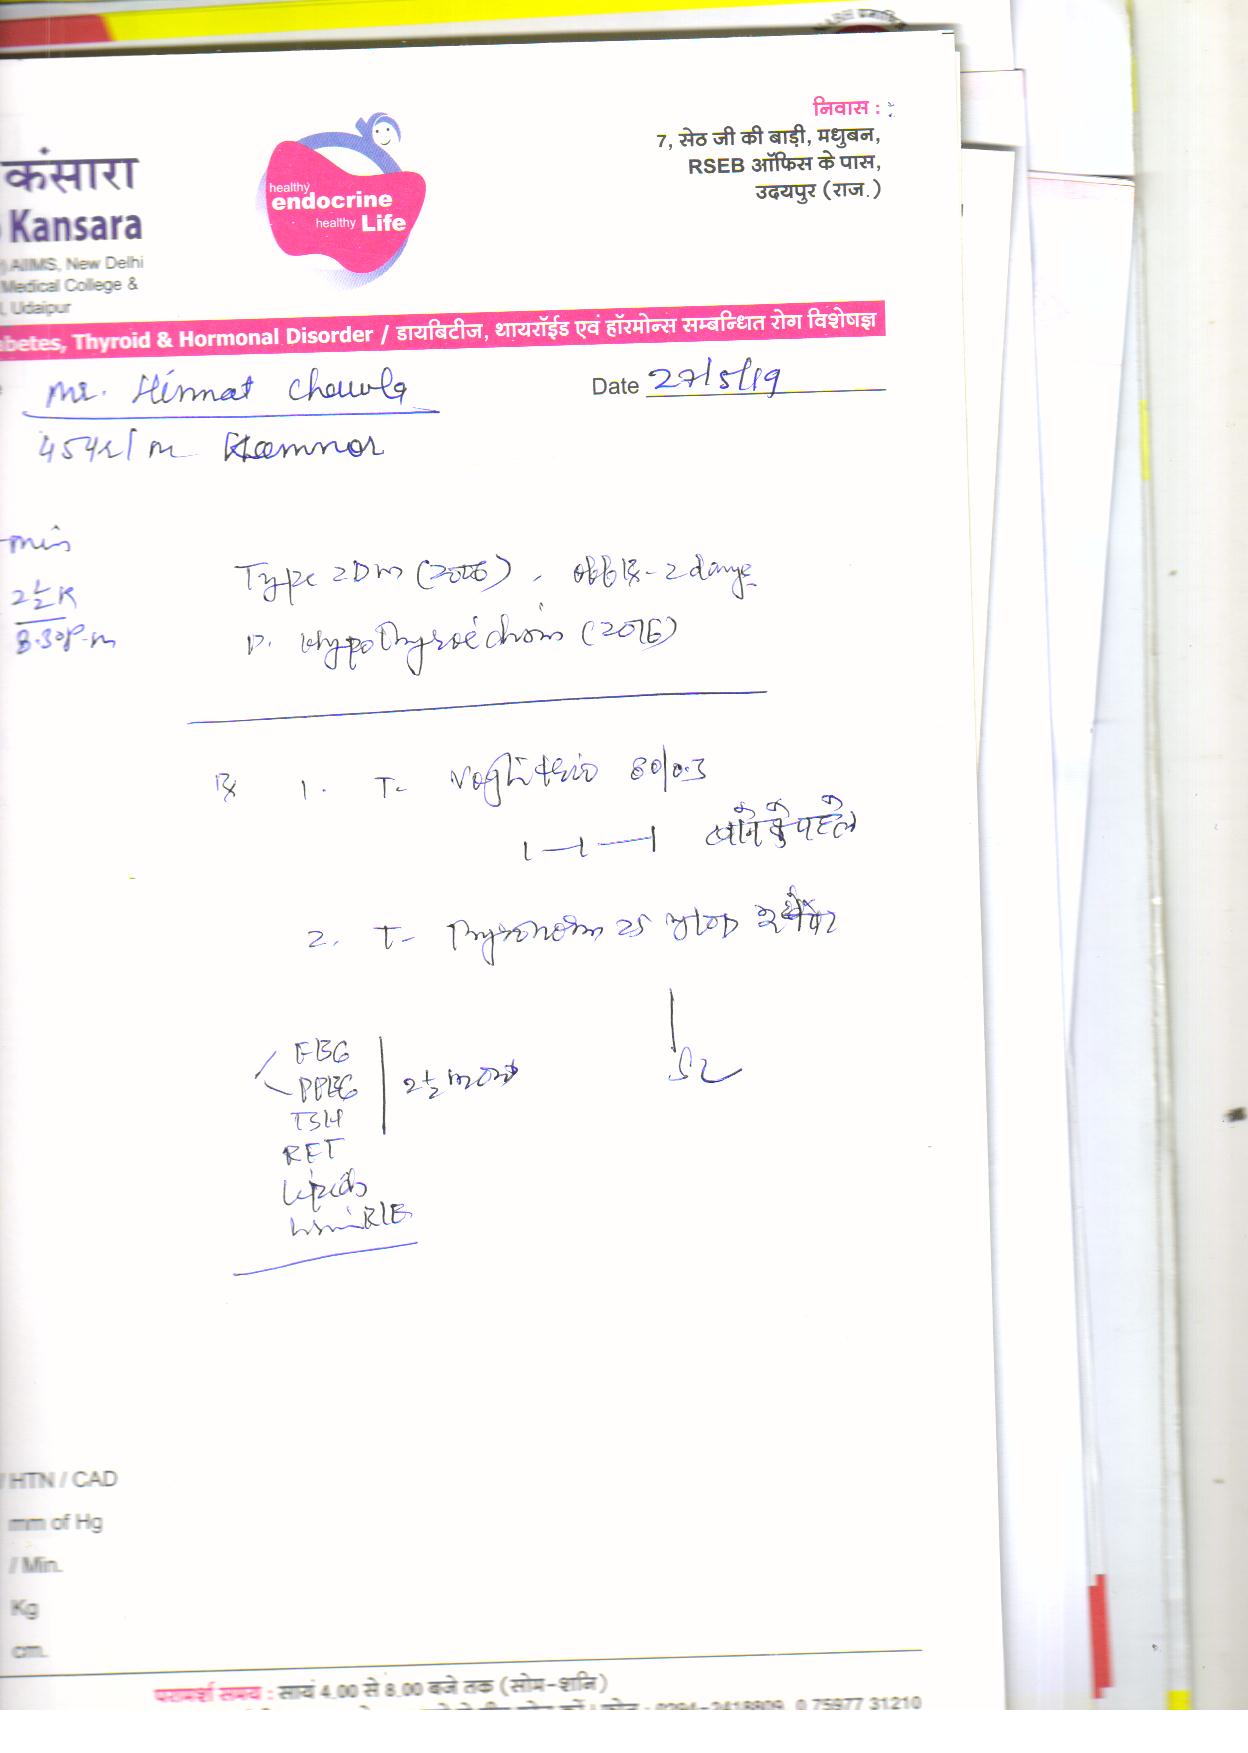 निवास :
7, सेठ जी की बाड़ी, मधुबन,
RSEB ऑफिस के पास,
उदयपुर (राज.)
कंसारा
Kansara
) AIIMS, New Delhi
Medical College &
, Udaipur
healthy
endocrine
healthy Life
betes, Thyroid & Hormonal Disorder / डायबिटीज, थायरॉईड एवं हॉरमोन्स सम्बन्धित रोग विशेषज्ञ
Mr. Himmat Chawla
Date 27/5/19
45yr/m
min
2½ K
8.30 P.m
Type 2 Dm (2016), off Rx - 2 days
P. Hypothyroidism (2016)
Rx 1. T- 80/0.3
1—1—1 खाने के पहले
2. T- Thyronorm 25
FBG
PPBG
TSH
2½ month
RFT
Lipids
/ HTN / CAD
mm of Hg
/ Min.
Kg
cm.
परामर्श समय : सायं 4.00 से 8.00 बजे तक (सोम-शनि)
फोन : 0294-2418809, 0 75977 31210